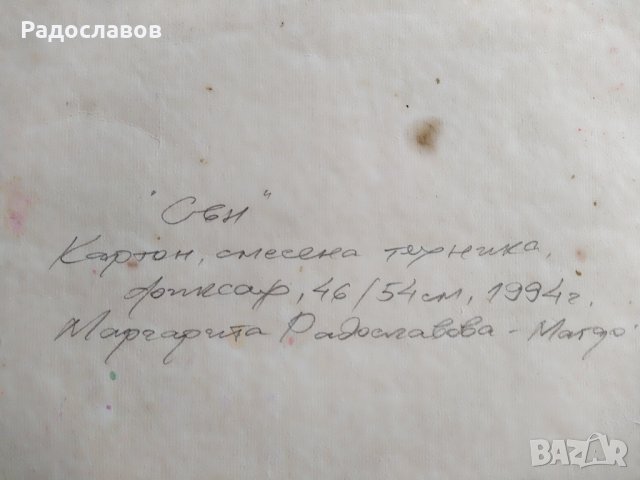 Радославов
"Сън"
Картон, смесена техника,
фиксаж, 46/54 см, 1994 г.
Маргарита Радославова - Магдо
BAZAR